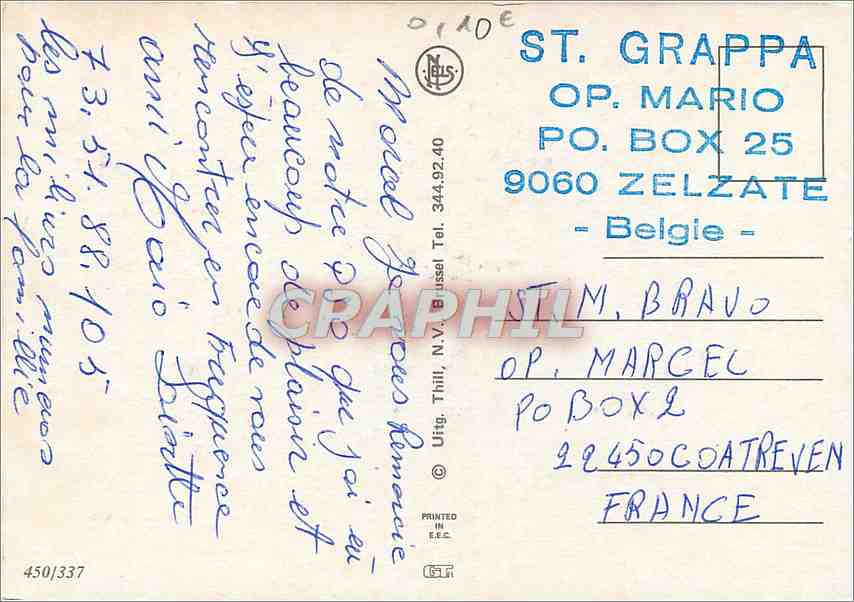 0,10€
ST. GRAPPA
OP. MARIO
PO. BOX 25
9060 ZELZATE
- Belgie -
NELS
Marcel je vous Remercie
de notre QSO que j'ai eu
beaucoup de plaisir et
J'espere encore de vous
rencontrer en fruquence
amii
73. 51. 88. 105
les milieurs
pour la famillie
ST. M. BRAVO
OP. MARCEL
PO BOX 2
22450 COATREVEN
FRANCE
© Uitg. Thill, N.V., Brussel Tel. 344.92.40
PRINTED
IN
E.E.C.
450/337
GT
CRAPHIL